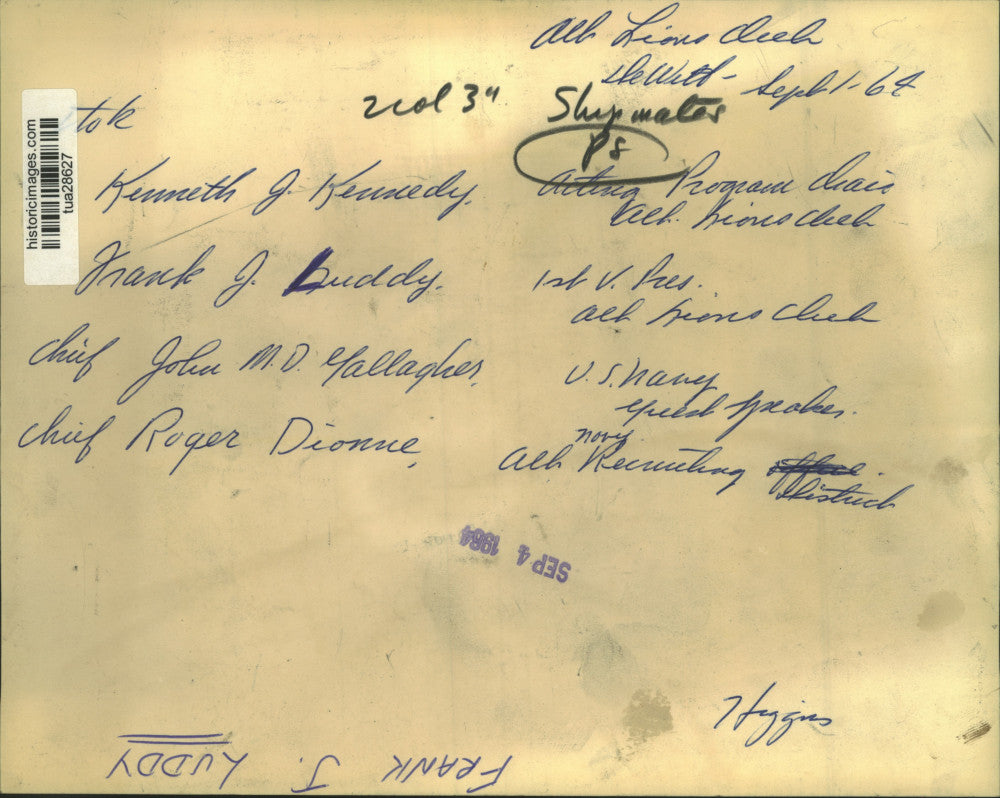 Alb Lions Club
DeWitt - Sept 1-64
tok
2 col 3" Shipmates
PS
Kenneth J. Kennedy, Acting Program Chair
Alb. Lions Club
Frank J. Luddy. 1st V. Pres.
Alb Lions Club
Chief John M.D. Gallagher, U.S. Navy
guest speaker.
Chief Roger Dionne, Alb Navy Recruiting office.
District
SEP 4 1964
Higgins
FRANK J. LUDDY
historicimages.com
tua28627